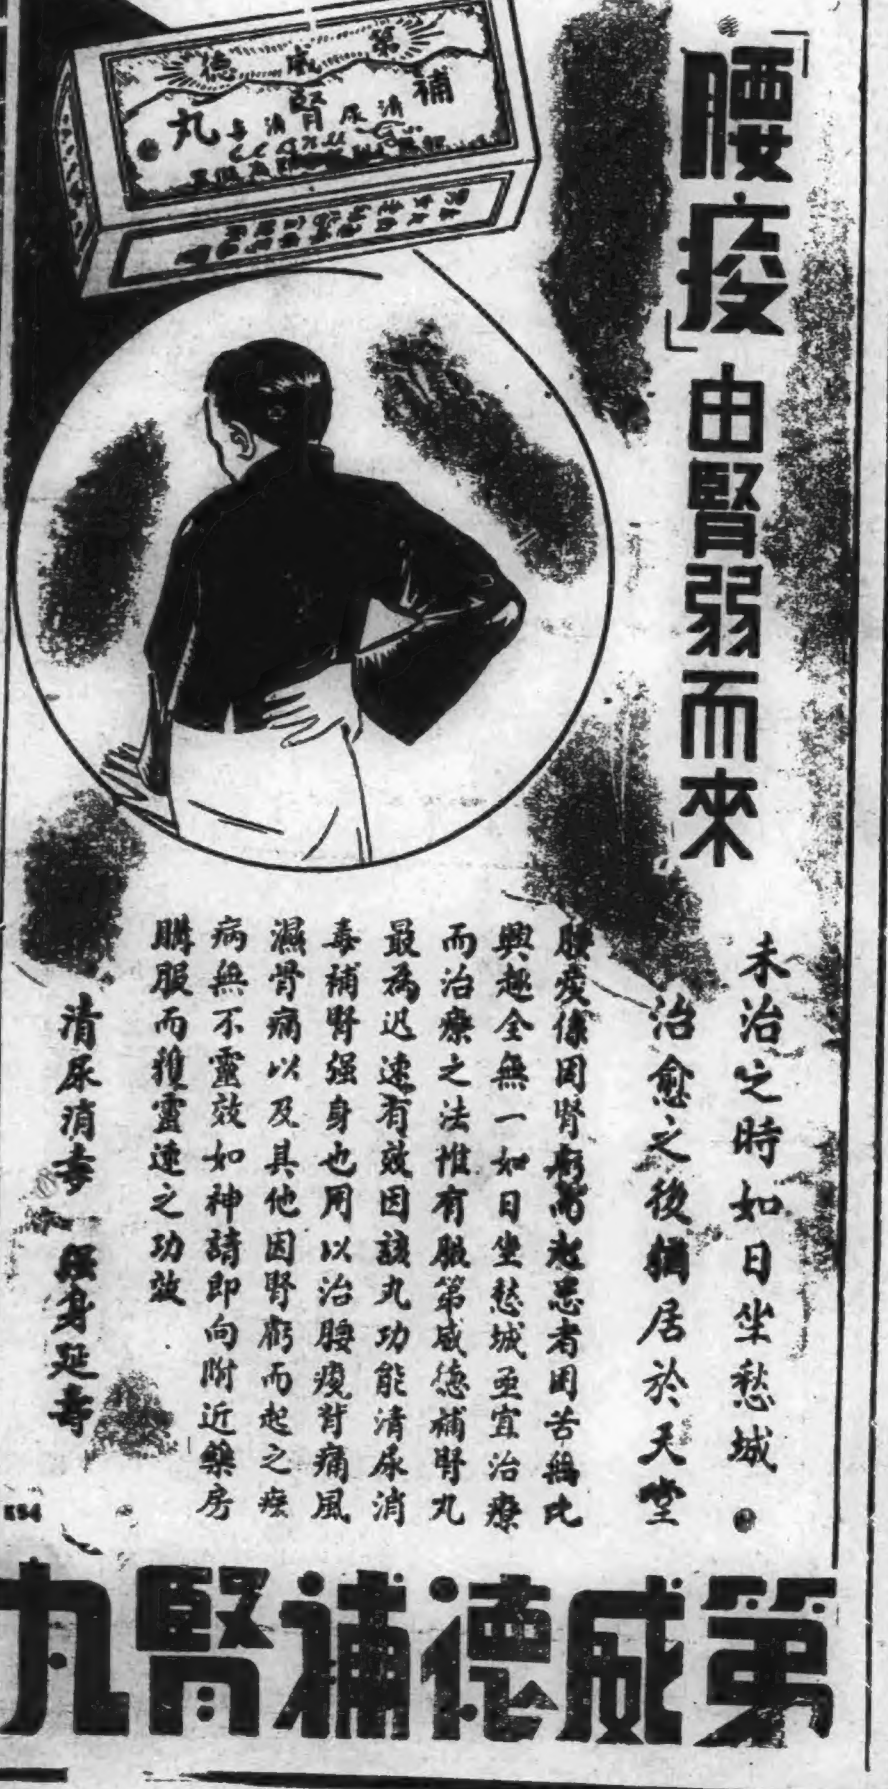 「腰痠」由腎弱而來
未治之時如日坐愁城
治愈之後猶居於天堂
腰痠係因腎虧而起患者困苦無比
興趣全無一如日坐愁城亟宜治療
而治療之法惟有服第威德補腎丸
最為迅速有效因該丸功能清尿消
毒補腎强身也用以治腰痠背痛風
濕骨痛以及其他因腎虧而起之疾
病無不靈效如神請即向附近藥房
購服而獲靈速之功效
清尿消毒 强身延壽
第威德
補腎丸
清尿消毒
K94
第威德補腎丸